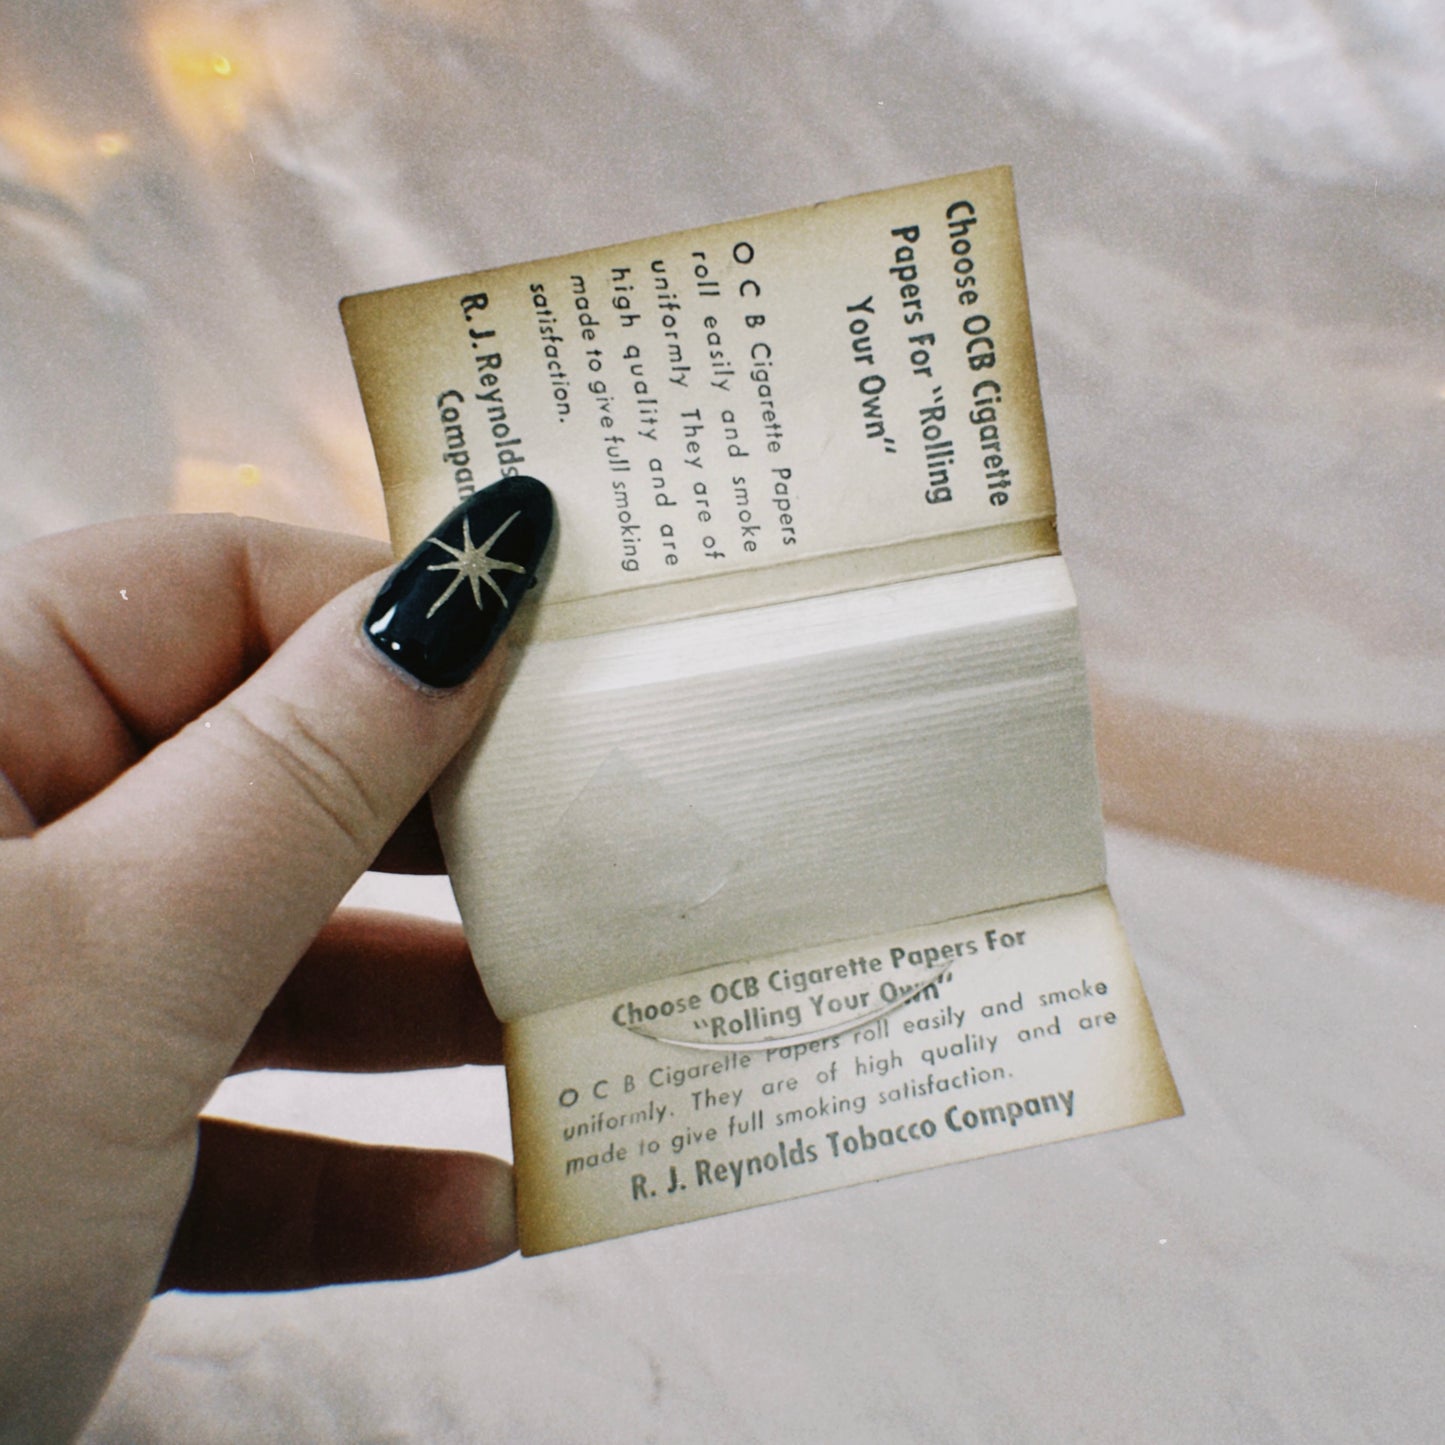 Choose OCB Cigarette
Papers For "Rolling
Your Own"
O C B Cigarette Papers
roll easily and smoke
uniformly They are of
high quality and are
made to give full smoking
satisfaction.
R. J. Reynolds
Choose OCB Cigarette Papers For
"Rolling Your Own"
O C B Cigarette Papers roll easily and smoke
uniformly. They are of high quality and are
made to give full smoking satisfaction.
R. J. Reynolds Tobacco Company